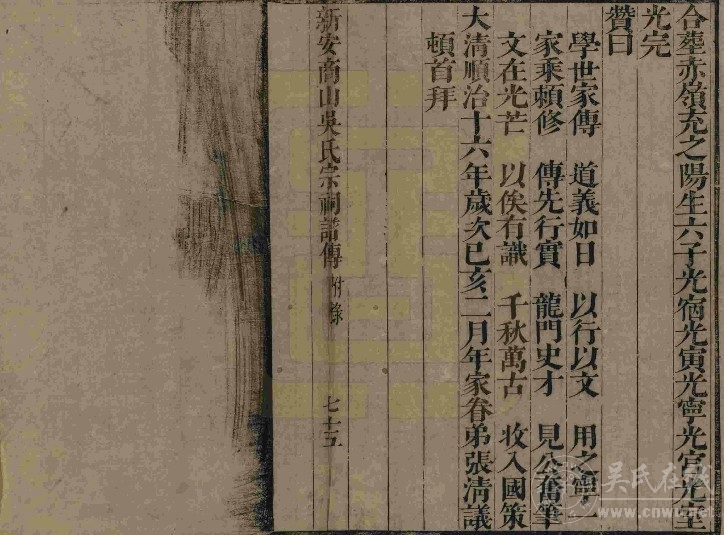 合葬赤嶺充之陽生六子光宿光寅光寧光官光室
光完
贊曰
學世家傳 道義如日 以行以文 用之寧一
家乘頼修 傳先行實 龍門史才 見公奮筆
文在光芒 以俟有識 千秋萬古 收入國策
大清順治十六年歲次己亥二月年家眷弟張清議
頓首拜
新安商山吳氏宗祠譜傳 附錄 七十五
吴氏在线
www.cnwu.net